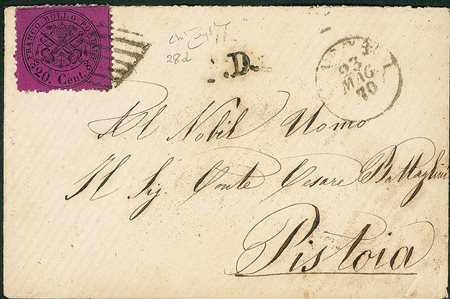 FRANCO BOLLO POSTALE
20. Cent.
28d
P.D.
23
MAG
70
Al Nobil Uomo
Il Sig. Conte Cesare Battaglini
Pistoia